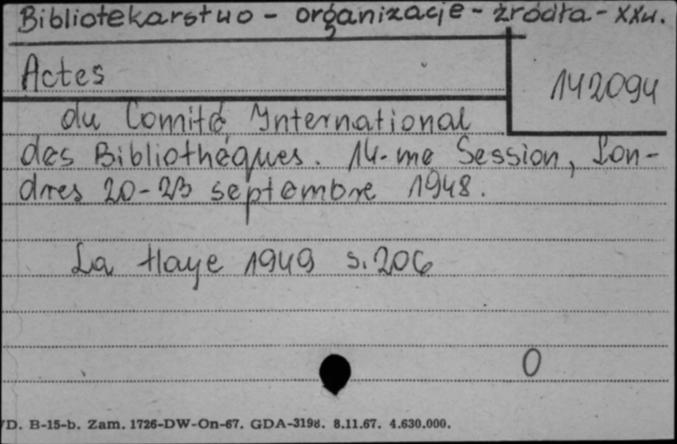 Bibliotekarstwo - organizacje - źródła - XXw.
Actes
142094
du Comité International
des Bibliothéques. 14-me Session, Lon-
dres 20-23 septembre 1948.
La Haye 1949 s. 206
0
/D. B-15-b. Zam. 1726-DW-On-67. GDA-3198. 8.11.67. 4.630.000.